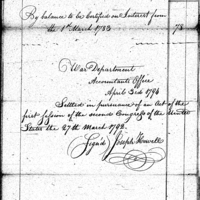 By balance to be Certified on Interest from
the 1st March 1783 73
War Department
Accountants Office
April 3rd 1794
Settled in pursuance of an Act of the
first Session of the second Congress of the United
States the 27th March 1792.
Sign'd Joseph Howell